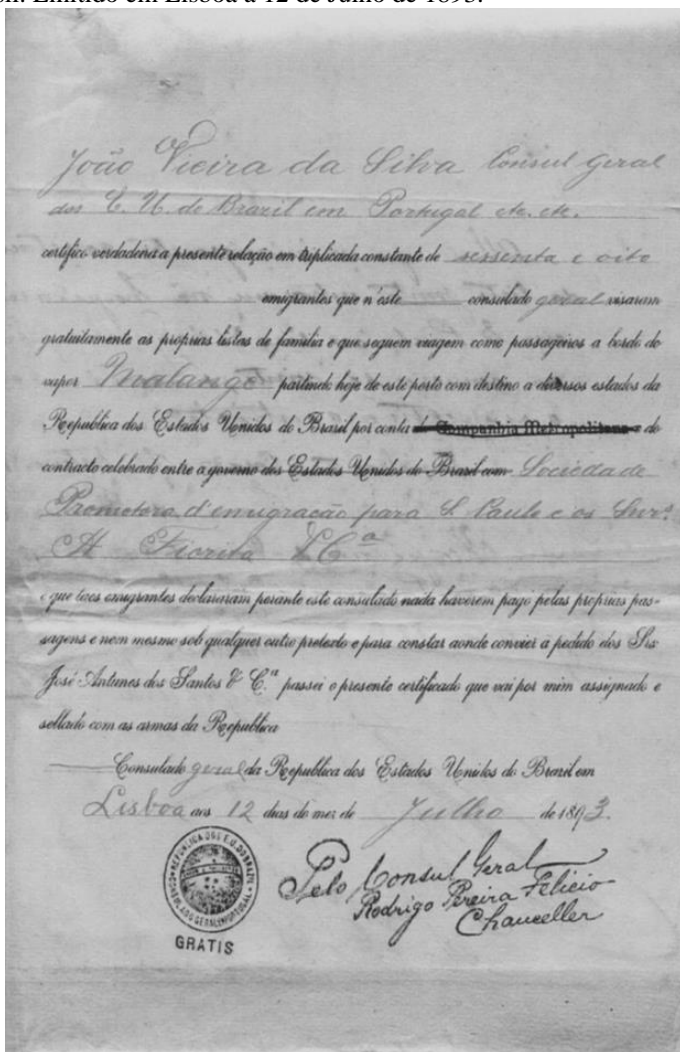 Emitido em Lisboa a 12 de Julho de 1893.
João Vieira da Silva Consul geral
dos E. U. do Brazil em Portugal etc. etc.
certifico verdadeira a presente relação em triplicada constante de sessenta e oito
emigrantes que n'este consulado geral visaram
gratuitamente as proprias listas de familia e que seguem viagem como passageiros a bordo do
vapor Malange partindo hoje de este porto com destino a diversos estados da
Republica dos Estados Unidos do Brazil por conta da Companhia Metropolitana e do
contracto celebrado entre o governo dos Estados Unidos do Brazil com Sociedade
Promotora d'emigração para S. Paulo e os Snrs.
A Fiorita & C.ª
e que taes emigrantes declararam perante este consulado nada haverem pago pelas proprias pas-
sagens e nem mesmo sob qualquer outro pretexto e para constar aonde convier a pedido dos Srs
José Antunes dos Santos & C.ª passei o presente certificado que vai por mim assignado e
sellado com as armas da Republica
Consulado geral da Republica dos Estados Unidos do Brazil em
Lisboa aos 12 dias do mez de Julho de 1893.
Pelo Consul Geral
Rodrigo Pereira Felicio
Chanceller
REPUBLICA DOS E. U. DO BRAZIL
CONSULADO GERAL EM PORTUGAL
GRATIS